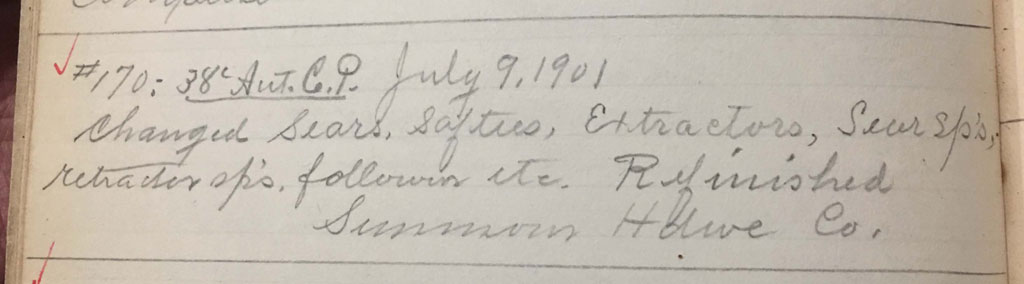 #170: 38c Aut. C.P. July 9, 1901
Changed Sears, Safties, Extractors, Sear Sp's,
retractor sp's. follower etc. Refinished
Simmons Hdwe Co.